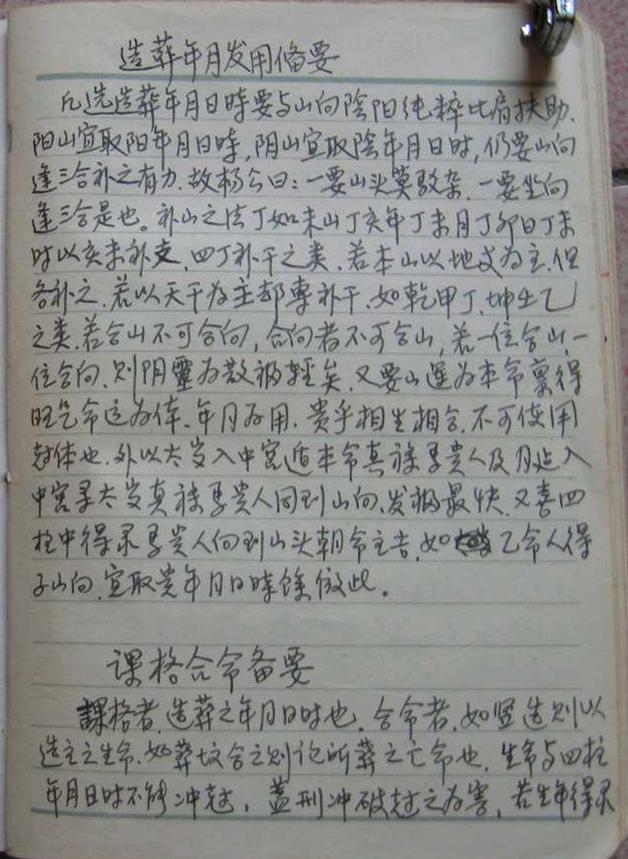 造葬年月发用备要
凡选造葬年月日時要与山向陰阳纯粹比肩扶助、
阳山宜取阳年月日時,阴山宜取陰年月日时,仍要山向
逢三合补之有力.故杨公曰:一要山头莫殽杂.一要坐向
逢三合是也。补山之法丁如未山丁亥年丁未月丁卯日丁未
时以亥未补支,四丁补干之类.若本山以地支为主.但
各补之.若以天干为主却專补干.如乾甲丁,坤壬乙
之类.若合山不可合向,合向者不可合山,若一位合山,一
位合向.则阴靈为散祸輕矣.又要山運为本命禀得
旺气命运为体.年月为用.贵乎相生相合.不可使用
尅体也.外以太岁入中宫遁本命真禄马贵人及月建入
中宫寻太岁真禄马贵人同到山向,发福最快.又喜四
柱中得录马贵人向到山头朝命主吉.如 乙命人得
子山向,宜取 年月日時馀倣此。
课格合命备要
課格者.造葬之年月日时也.合命者.如竖造则以
造主之生命.如葬坟合之则论所葬之亡命也.生命与四柱
年月日时不能冲尅,盖刑冲破尅之为害,若生年得录